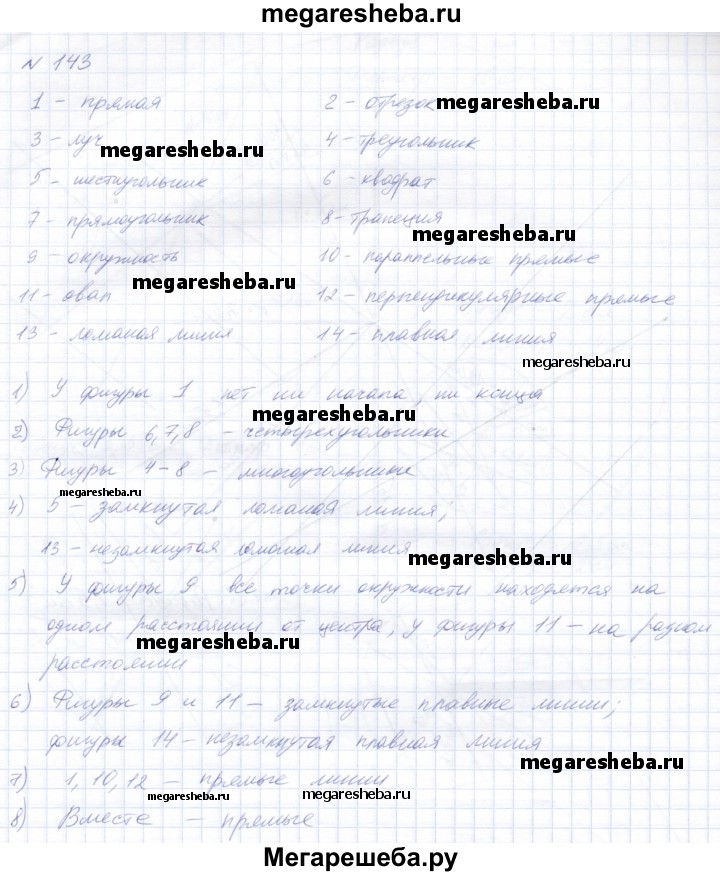 megaresheba.ru
№ 143
1 - прямая 2 - отрезок megaresheba.ru
3 - луч megaresheba.ru 4 - треугольник
5 - шестиугольник 6 - квадрат
7 - прямоугольник 8 - трапеция megaresheba.ru
9 - окружность megaresheba.ru 10 - параллельные прямые
11 - овал 12 - перпендикулярные прямые
13 - ломаная линия 14 - плавная линия
megaresheba.ru
1) У фигуры 1 нет ни начала, ни конца
megaresheba.ru
2) Фигуры 6, 7, 8 - четырехугольники
3) Фигуры 4 - 8 - многоугольники
megaresheba.ru
4) 5 - замкнутая ломаная линия;
13 - незамкнутая ломаная линия megaresheba.ru
5) У фигуры 9 все точки окружности находятся на
одном расстоянии от центра, у фигуры 11 - на разном
megaresheba.ru
расстоянии
6) Фигуры 9 и 11 - замкнутые плавные линии;
фигуры 14 - незамкнутая плавная линия
megaresheba.ru
7) 1, 10, 12 - прямые линии
megaresheba.ru megaresheba.ru
8) Вместе - прямые
Мегарешеба.ру